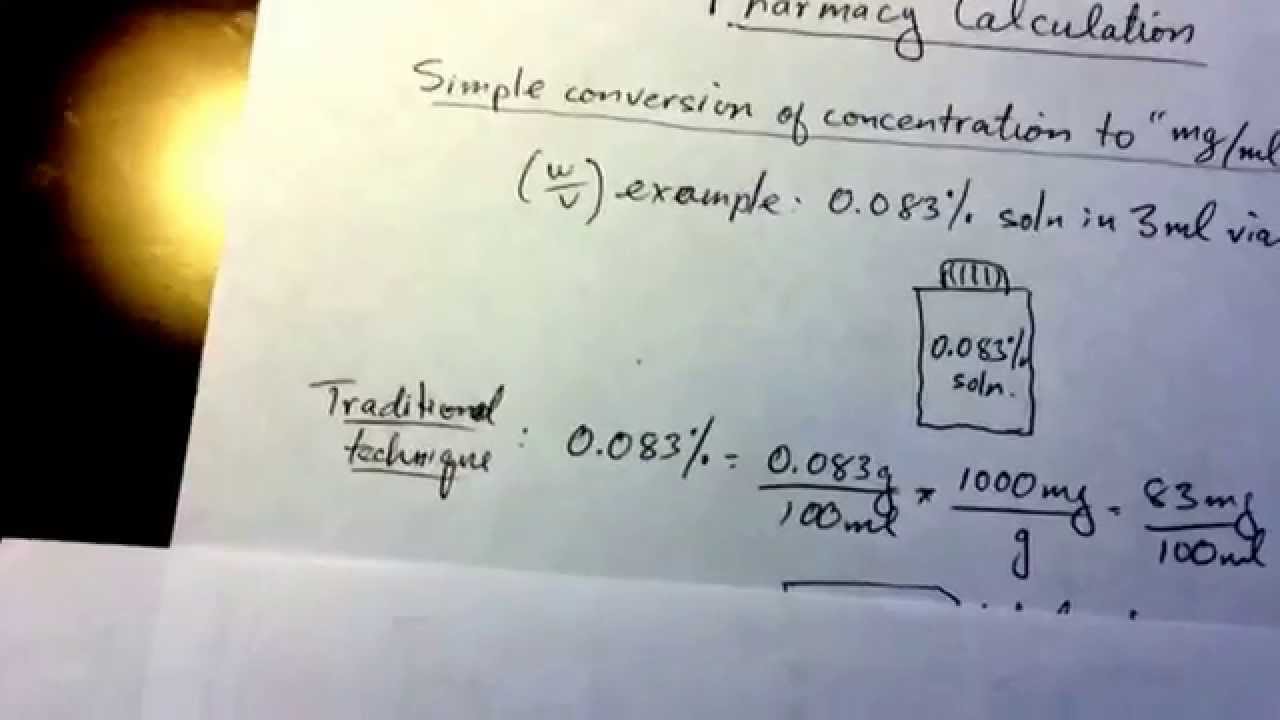 Pharmacy Calculation
Simple conversion of concentration to "mg/ml
(w/v) example: 0.083% soln in 3ml via
0.083%
soln.
Traditional
technique : 0.083% = 0.083g/100ml × 1000mg/g = 83mg/100ml